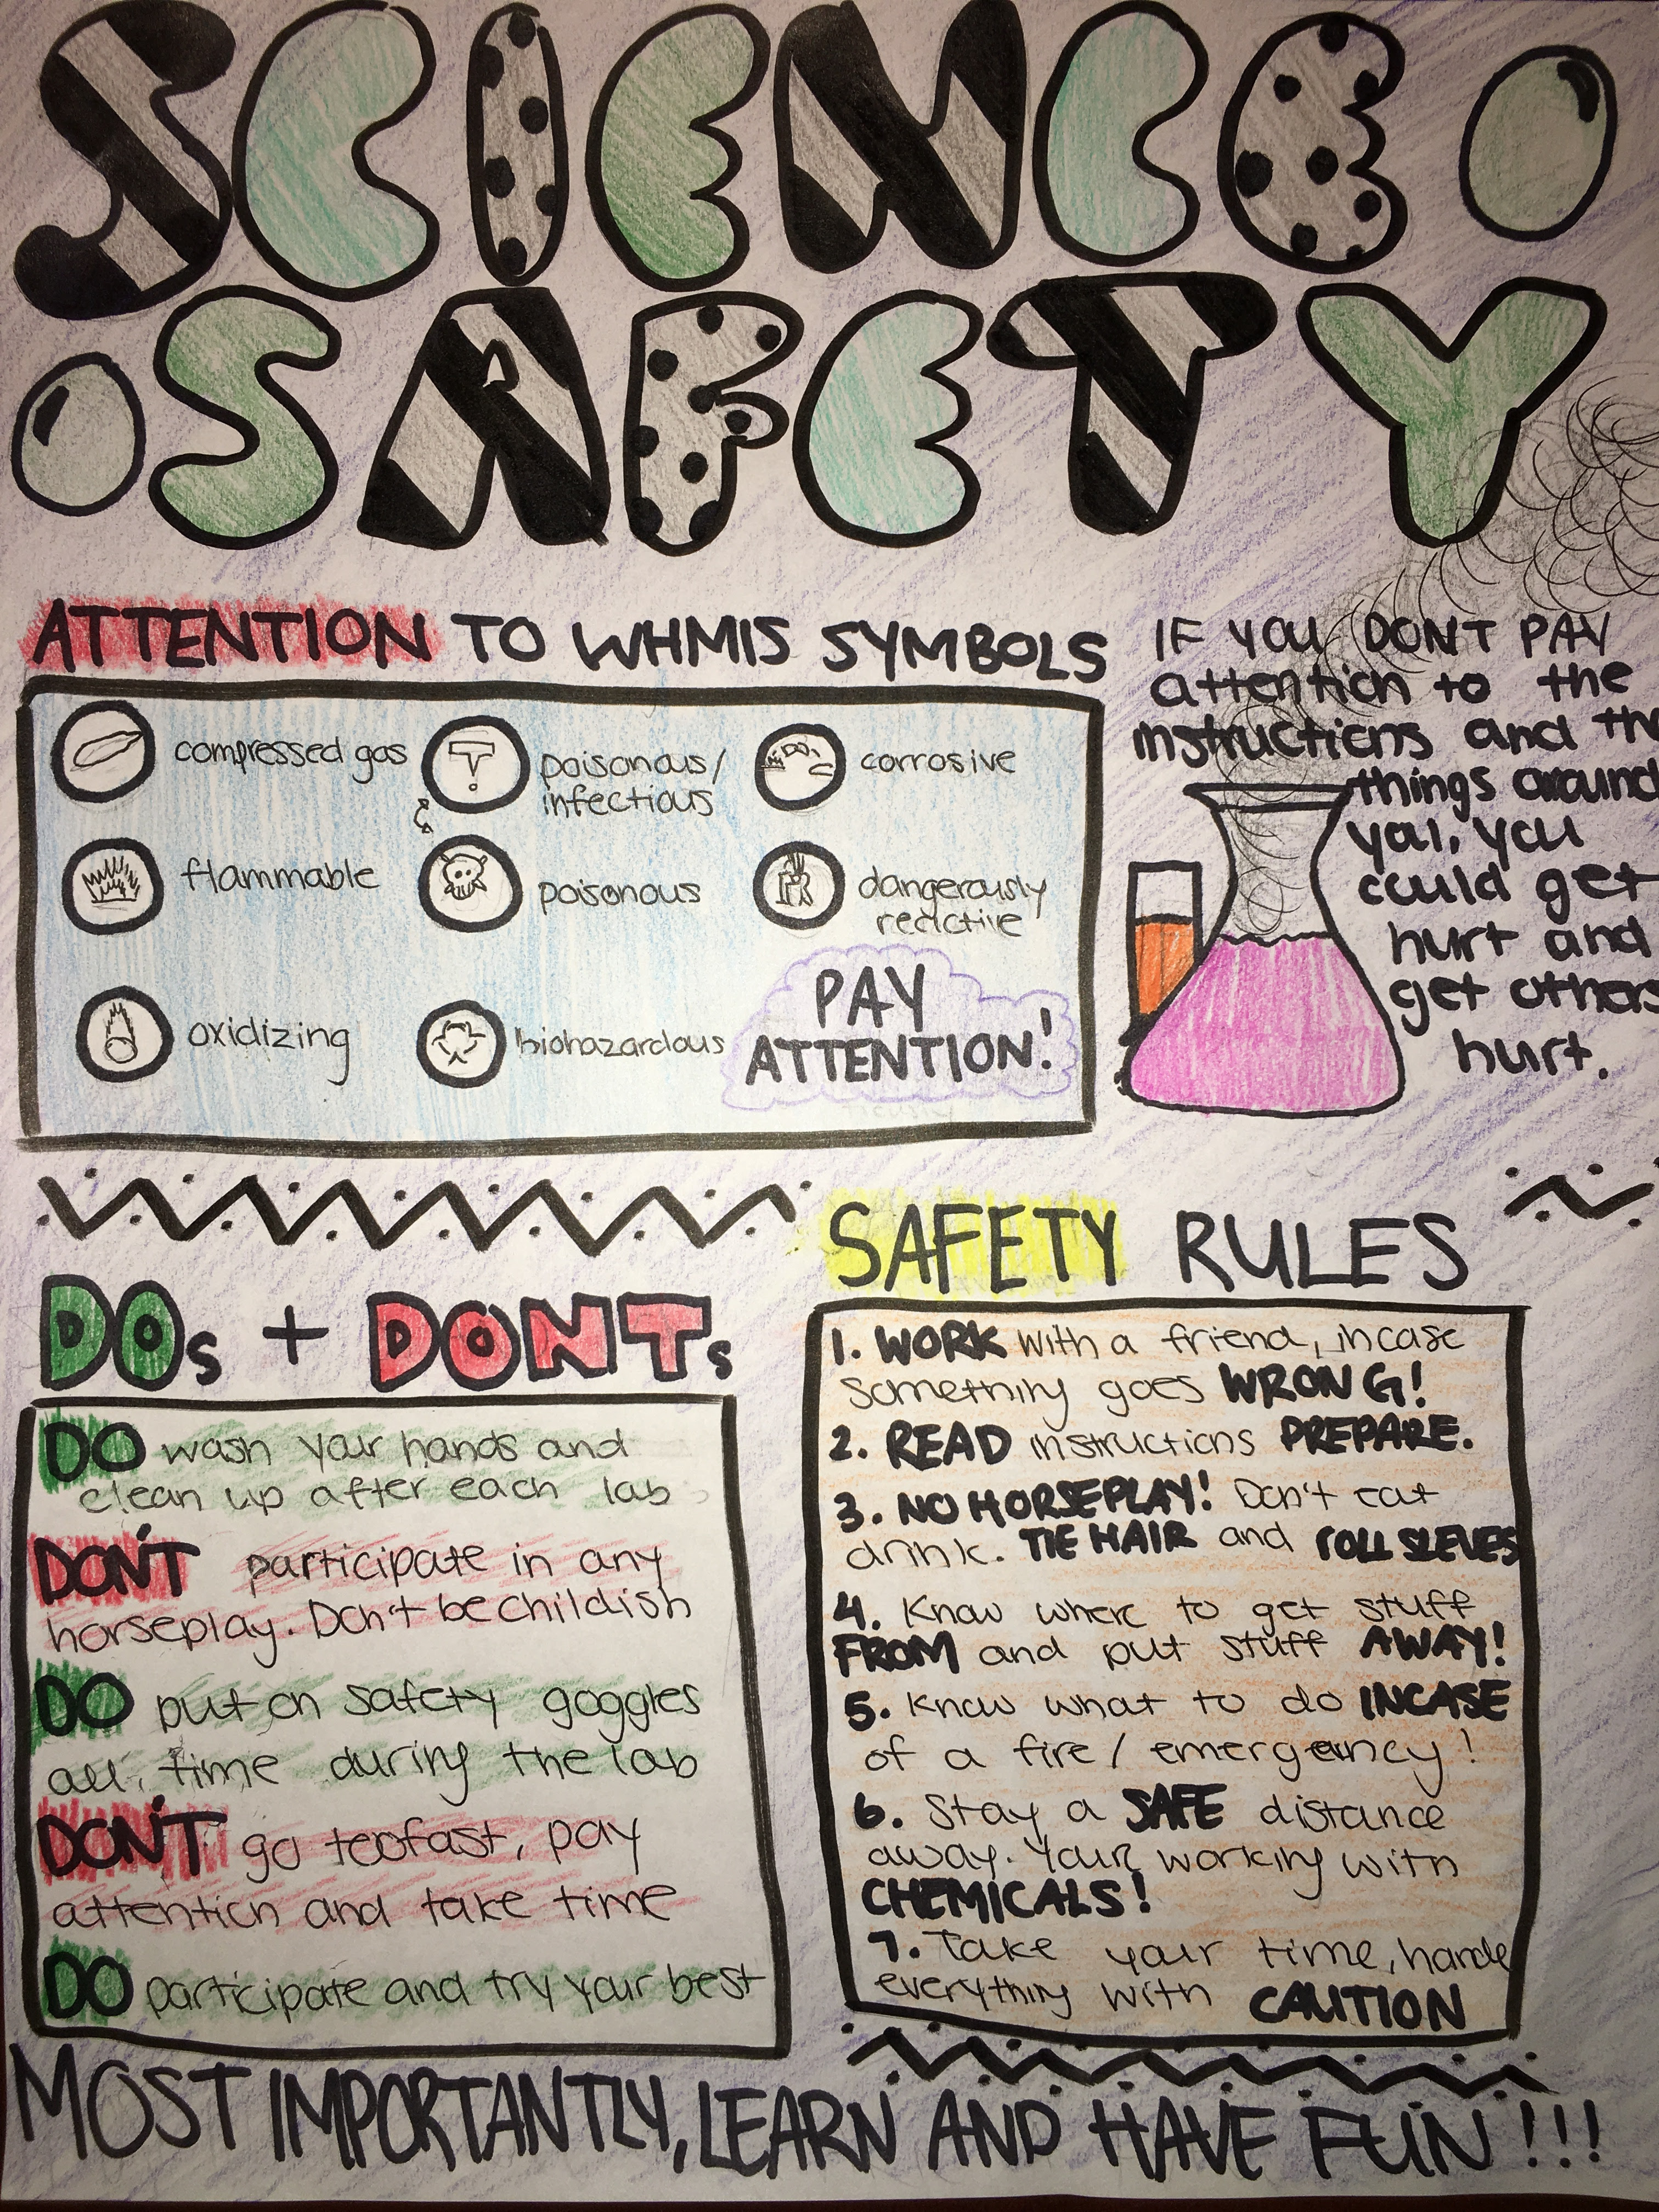 SCIENCE
SAFETY
ATTENTION TO WHMIS SYMBOLS
compressed gas
poisonous/
infectious
corrosive
flammable
poisonous
dangerously
reactive
oxidizing
biohazardous
PAY
ATTENTION!
IF YOU DONT PAY
attention to the
instructions and the
things around
you, you
could get
hurt and
get others
hurt.
DOs + DONTs
DO wash your hands and
clean up after each lab
DON'T participate in any
horseplay. Don't be childish
DO put on safety goggles
all time during the lab
DON'T go too fast, pay
attention and take time
DO participate and try your best
SAFETY RULES
1. WORK with a friend, incase
something goes WRONG!
2. READ instructions PREPARE.
3. NO HORSEPLAY! Don't eat
drink. TIE HAIR and ROLL SLEVES
4. Know where to get stuff
FROM and put stuff AWAY!
5. Know what to do INCASE
of a fire/ emergency!
6. Stay a SAFE distance
away. Your working with
CHEMICALS!
7. Take your time, handle
everything with CAUTION
MOST IMPORTANTLY, LEARN AND HAVE FUN!!!